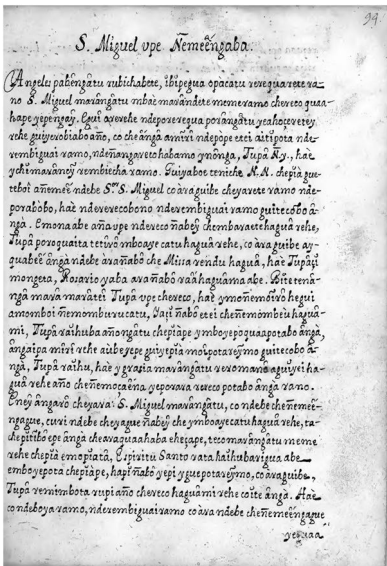 94.
S. Miguel upe Ñemeẽngaba.
Angeles pabẽngâtu rubichabete, ibipegua opacatu rerequarete ra-
no S. Miguel marângatu mbaè marândete memeramo chereco guaa-
hape yepengay.
rehe guiyerobiabo año, co che ângâ amiri ndepòpe etei aitipota nde-
rembiguai ramo, ndeñangareto habamo ynônga, Tupâ Ry, haè
ychimarâney rembiecha ramo. Guiyaboe teniche N.N. chepiâ gue-
tebo añemeẽ ndebe Sto. S. Miguel co ara guibe cheyarete ramo nde-
porabobo, haè nderereco bono nderembiguai ramo guitecobo â-
ngâ. Emona abe aña upe ndereco ñabeỹ chembaraete haguâ rehe,
Tupâ poroquaita tetirô mboaye catu haguâ rehe, co ara guibe ay-
quabeẽ ângâ ndebe ara ñabô che Missa rendu haguâ, haè Tupâçi
mongeta, Rosario yaba ara ñabô raâ haguâma abe.
ngâ mara maratei Tupâ upe chereco, haè ymoñemôirô hegui
amomboi ñemomburu catu, Yaçi ñabô etei cheñemômbeu haguâ-
mi, Tupâ raihuba añongâtu chepiâpe ymboyepoquaapotabo ângâ,
angaipa mirî rehe aùbe yepe guiyepiâ moîpotareỹmo guitecobo â-
ngâ, Tupâ raihu, haè ygracia marângâtu reromano aguiyei ha-
guâ rehe año cheñemocaẽna, yeporara rereco potabo ângâ rano.
Eneỹ ângarô cheyara S. Miguel marângatu, co ndebe cheñemeẽ-
ngague, curi ndebe cheyague ñabeỹ che ymboaye catu haguâ rehe, ta-
che pitîbô epe ângâ chearaquaahaba eheçape, tecomarângâtu meme
rehe chepiâ emopirâtâ, Espiritu Santo rata haihubarigua abe
emboyepota chepiâpe, hapiñabô yepi y guepotareỹmo, co ara guibe,
Tupâ remimbota rupi año chereco haguâmi rehe coîte ângâ. Haè
co ndeboya ramo, nderembiguai ramo co ara ndebe cheñemeẽngague
yeguaa